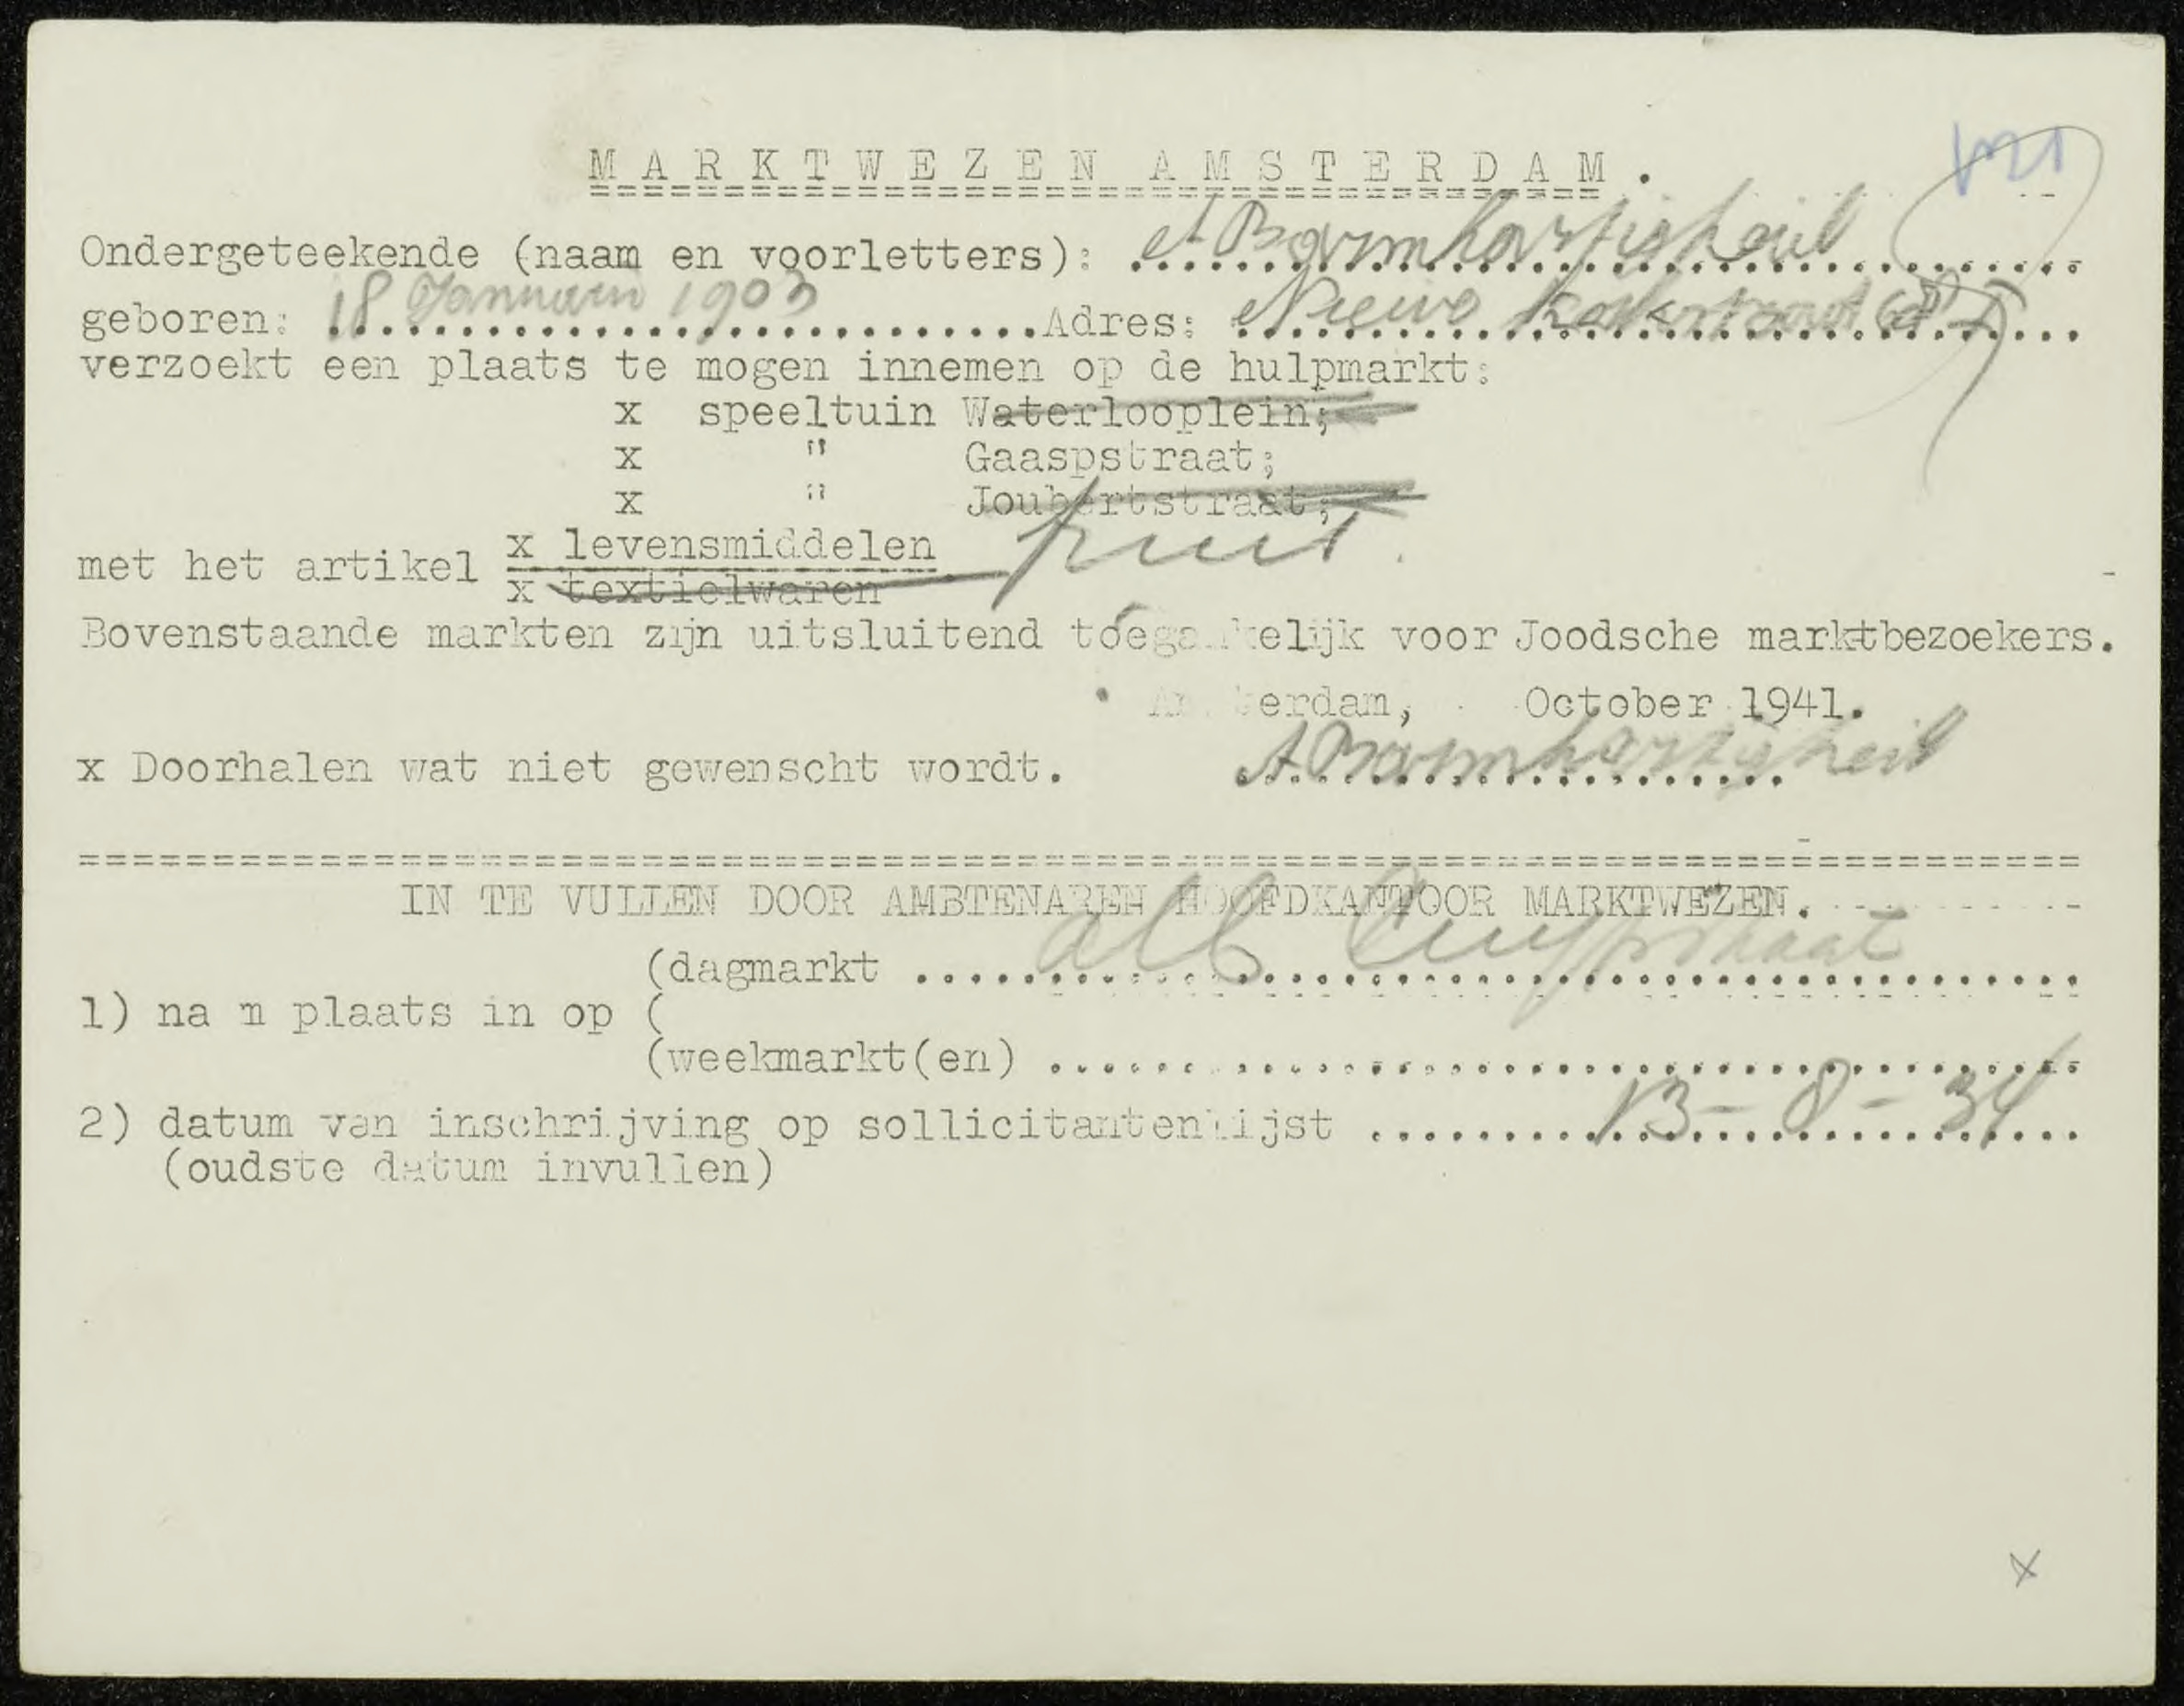 MARKTWEZEN AMSTERDAM.
Ondergeteekende (naam en voorletters): A Barmhartigheid
geboren: 18 Januari 1903 Adres: Nieuwe Kerkstraat
verzoekt een plaats te mogen innemen op de hulpmarkt:
x speeltuin Waterlooplein;
x " Gaaspstraat;
x " Joubertstraat;
met het artikel x levensmiddelen fruit.
x textielwaren
Bovenstaande markten zijn uitsluitend toegankelijk voor Joodsche marktbezoekers.
Amsterdam, October 1941.
x Doorhalen wat niet gewenscht wordt. A Barmhartigheid
IN TE VULLEN DOOR AMBTENAREN HOOFDKANTOOR MARKTWEZEN.
(dagmarkt Alb Cuypstraat
1) na m plaats in op (
(weekmarkt(en)
2) datum van inschrijving op sollicitantenlijst 13-8-34
(oudste datum invullen)
x